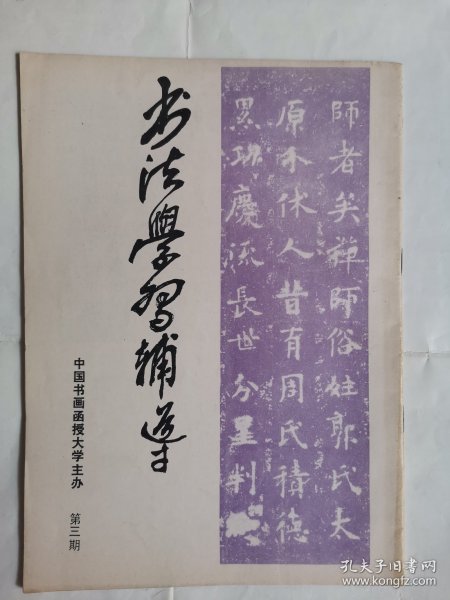 師者矣禪師俗姓郭氏太
原介休人昔有周氏積德
累功慶流長世分星判
书法學習輔導
中国书画函授大学主办
第三期
孔夫子旧书网
www.kongfz.com